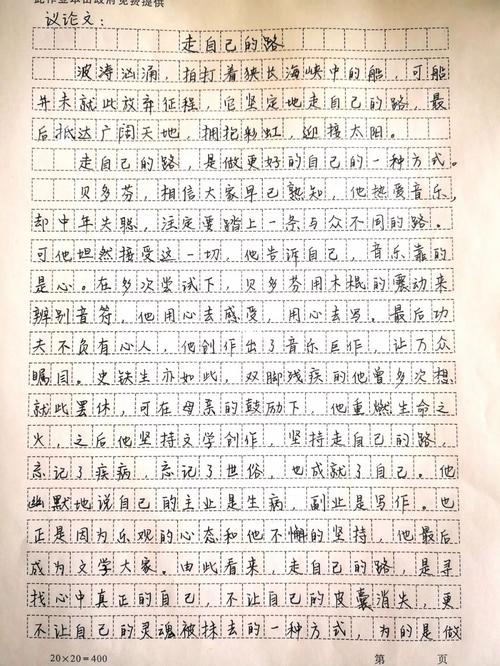 此作业纸由政府免费提供
议论文：
走自己的路
波涛汹涌，拍打着狭长海峡中的船，可船
并未就此放弃征程，它坚定地走自己的路，最
后抵达广阔天地，拥抱彩虹，迎接太阳。
走自己的路，是做更好的自己的一种方式。
贝多芬，相信大家早已熟知，他热爱音乐，
却中年失聪，注定要踏上一条与众不同的路。
可他坦然接受这一切，他告诉自己，音乐靠的
是心。在多次尝试下，贝多芬用木棍的震动来
辨别音符，他用心去感受，用心去写。最后功
夫不负有心人，他创作出了音乐巨作，让万众
瞩目。史铁生亦如此，双脚残疾的他曾多次想
就此罢休，可在母亲的鼓励下，他重燃生命之
火，之后他坚持文学创作，坚持走自己的路，
忘记了疾病，忘记了世俗，也成就了自己。他
幽默地说自己的主业是生病，副业是写作。也
正是因为乐观的心态和他不懈的坚持，他最后
成为文学大家。由此看来，走自己的路，是寻
找心中真正的自己，不让自己的皮囊消失，更
不让自己的灵魂被抹去的一种方式，为的是做
20×20=400 第 页